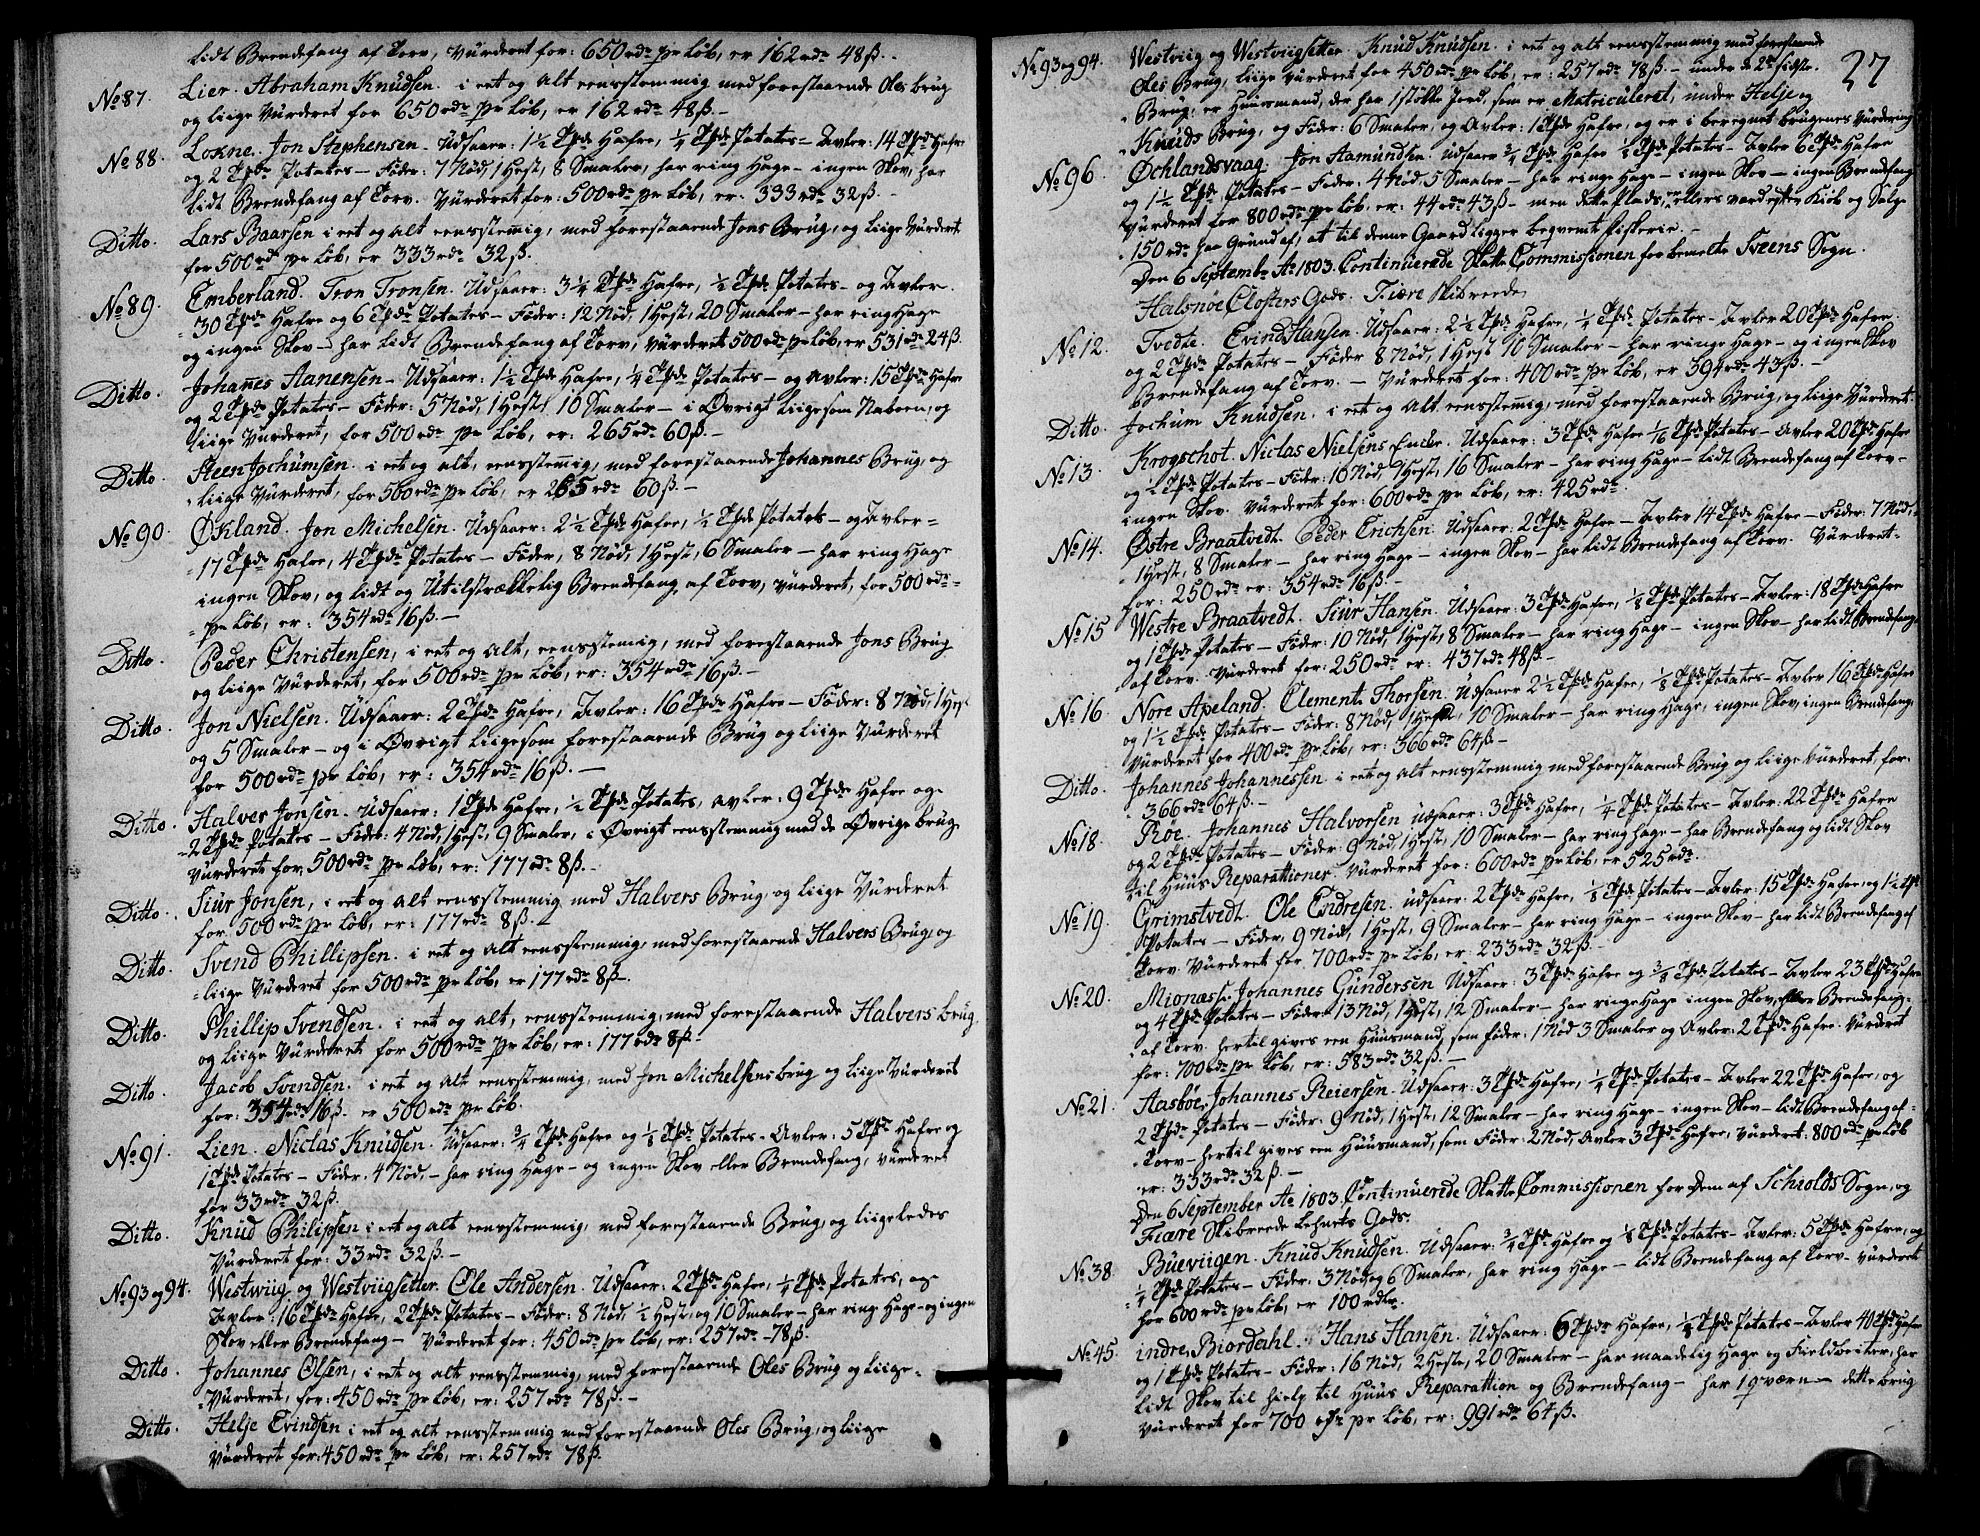 lidt Brendefang af Torv, Vurderet for: 650 rd. pr Løb, er 162 rd. 48 ß.
No 87. Lier. Abraham Knudsen. i eet og alt eensstemmig med forestaaende Oles brug
og liige Vurderet for 650 rd. pr Løb, er 162 rd. 48 ß.
No 88. Lokne. Jon Stephensen. Udsaaer: 1½ Tpd. Hafre, ¼ Tpd. Potates – Avler: 14 Tpd. Hafre
og 2 Tpd. Potates – Føder: 7 Nød, 1 Hest, 8 Smaler, har ring Hage – ingen Skov, har
lidt Brendefang af Torv. Vurderet for: 500 rd. pr Løb, er: 333 rd. 32 ß.
Ditto. Lars Baarsen i eet og alt eensstemig, med forestaaende Jons Brug, og liige Vurderet
for 500 rd. pr Løb, er 333 rd. 32 ß.
No 89. Emberland. Tron Tronsen. Udsaaer: 3¼ Tpd. Hafre, ½ Tpd. Potates – og Avler.
30 Tpd. Hafre og 6 Tpd. Potates – Føder: 12 Nød, 1 Hest, 20 Smaler – har ring Hage
og ingen Skov – har lidt Brendefang af Torv, Vurderet 500 rd. pr Løb, er 531 rd. 24 ß.
Ditto. Johannes Aanensen – Udsaaer: 1½ Tpd. Hafre, ¼ Tpd. Potates – og Avler: 15 Tpd. Hafre
og 2 Tpd. Potates – Føder: 5 Nød, 1 Hest, 10 Smaler – i Øvrigt liigesom Naboen, og
liige Vurderet, for 500 rd. pr Løb, er: 265 rd. 60 ß.
Ditto. Steen Jochumsen. i eet og alt, eensstemig, med forestaaende Johannes Brug, og
liige Vurderet, for 500 rd. pr Løb, er 265 rd. 60 ß.
No 90. Økland. Jon Michelsen. Udsaaer: 2½ Tpd. Hafre, ½ Tpd. Potates – og Avler
17 Tpd. Hafre, 4 Tpd. Potates – Føder, 8 Nød, 1 Hest, 6 Smaler – har ring Hage
ingen Skov, og lidt og Utilstrækkelig Brendefang af Torv, Vurderet, for 500 rd.
pr Løb, er: 354 rd. 16 ß.
Ditto. Peder Christensen, i eet og alt, eensstemig, med forestaaende Jons Brug
og liige Vurderet, for 500 rd. pr Løb, er: 354 rd. 16 ß.
Ditto. Jon Nielsen. Udsaaer: 2 Tpd. Hafre, Avler: 16 Tpd. Hafre – Føder: 8 Nød, 1 Hest
og 5 Smaler – og i Øvrigt liigesom forestaaende Brug og liige Vurderet
for 500 rd. pr Løb, er: 354 rd. 16 ß.
Ditto. Halver Jonsen. Udsaaer: 1 Tpd. Hafre, ½ Tpd. Potates, avler: 9 Tpd. Hafre og
2 Tpd. Potates – Føder: 4 Nød, 1 Hest, 9 Smaler, i Øvrigt eensstemmig med de Øvrige brug.
Vurderet for 500 rd. pr Løb, er: 177 rd. 8 ß.
Ditto. Siur Jonsen, i eet og alt eensstemmig med Halvers Brug og liige Vurderet
for 500 rd. pr Løb, er: 177 rd. 8 ß.
Ditto. Svend Phillipsen. i eet og alt eensstemmig, med forestaaende Halvers Brug, og
liige Vurderet for 500 rd. pr Løb, er 177 rd. 8 ß.
Ditto. Phillip Svendsen. i eet og alt, eensstemmig, med forestaaende Halvers brug.
og liige Vurderet for 500 rd. pr Løb, er: 177 rd. 8 ß.
Ditto. Jacob Svendsen. i eet og alt eensstemmig, med Jon Michelsens brug og liige Vurderet
for: 354 rd. 16 ß. er 500 rd. pr Løb.
No 91. Lien. Niclas Knudsen. Udsaaer: ¾ Tpd. Hafre og ⅛ Tpd. Potates – Avler: 5 Tpd. Hafre og
1 Tpd. Potates – Føder: 4 Nød, – har ring Hage – og ingen Skov eller Brendefang, Vurderet
for 33 rd. 32 ß.
Ditto. Knud Philipsen i eet og alt eensstemmig, med forestaaende Brug, og liigeledes
Vurderet for: 33 rd. 32 ß.
No 93 og 94. Westviig og Westviigsetter. Ole Andersen. Udsaaer: 2 Tpd. Hafre, ¼ Tpd. Potates, og
Avler: 16 Tpd. Hafre, 2 Tpd. Potates – Føder: 8 Nød, ½ Hest, og 10 Smaler – har ringe Hage – og ingen
Skov eller Brendefang – Vurderet for: 450 rd. pr Løb, er: 257 rd. 78 ß.
Ditto. Johannes Olsen, i eet og alt eensstemmig, med forestaaende Oles Brug og liige
Vurderet, for: 450 rd. pr Løb, er: 257 rd. 78 ß.
Ditto. Helje Evindsen i eet og alt eensstemmig med forestaaende Oles Brug, og liige
Vurderet for: 450 rd. pr Løb, er: 257 rd. 78 ß.
27
No 93 og 94. Westviig og Westviigsetter. Knud Knudsen. i eet og alt eensstemmig med forestaaende
Oles Brug, liige Vurderet for 450 rd. pr Løb, er: 257 rd. 78 ß. – under de 2de sidste
Brug, er Huusmand, der har 1 støkke Jord, som er Matriculeret, under Helje og
Knuds Brug, og Føder: 6 Smaler, og Avler: 1 Tpd. Hafre, og er i beregnet brugenes Vurdering
No 96. Øchlandsvaag. Jon Aamundsen. Udsaaer ¾ Tpd. Hafre ⅛ Tpd. Potates – Avler 6 Tpd. Hafre
og 1½ Tpd. Potates – Føder: 4 Nød, 5 Smaler – har ringe Hage – ingen Skov – ingen Brendefang
Vurderet for 800 rd. pr Løb, er: 44 rd. 43 ß – men dette Plads, er ellers værd efter Kiøb og Salg
150 rd. paa Grund af, at til denne Gaard ligger beqvemt fiskerie.
Den 6 Septembr Ao 1803. Continuerede Skatte Commissionen for bemelte Sveens Sogn.
Halsnøe Closters Gods. Fiære Skibreede
No 12. Tvedte. Evind Hansen. Udsaaer: 2½ Tpd. Hafre, ¼ Tpd. Potates – Avler 20 Tpd. Hafre
og 2 Tpd. Potates – Føder 8 Nød, 1 Hest 10 Smaler – har ringe Hage – og ingen Skov
Brendefang af Torv. – Vurderet for: 400 rd. pr Løb, er 394 rd. 43 ß.
Ditto. Jochum Knudsen. i eet og alt eensstemig, med forestaaende Brug, og liige Vurderet.
No 13. Krogschot. Niclas Nielsens Encke. Udsaaer: 3 Tpd. Hafre 1/16 Tpd. Potates – Avler 20 Tpd. Hafre
og ½ Tpd. Potates – Føder: 10 Nød, 1 Hest, 16 Smaler – har ring Hage – lidt Brendefang af Torv –
ingen Skov. Vurderet for: 600 rd. pr Løb, er: 425 rd.
No 14. Østre Braatvedt. Peder Erichsen. Udsaaer: 2 Tpd. Hafre – Avler 14 Tpd. Hafre – Føder: 7 Nød,
1 Hest, 8 Smaler – har ring Hage – ingen Skov – har lidt Brendefang af Torv. Vurderet
for: 250 rd. er: 354 rd. 16 ß.
No 15 Westre Braatvedt. Siur Hansen. Udsaaer: 3 Tpd. Hafre, ⅛ Tpd. Potates – Avler: 18 Tpd. Hafre
og 1 Tpd. Potates – Føder: 10 Nød, 1 Hest, 8 Smaler – har ring Hage – ingen Skov – har lidt Brendefang
af Torv. Vurderet for: 250 rd. er: 437 rd. 48 ß.
No 16. Nore Apeland. Clement Thorsen. Udsaaer 2½ Tpd. Hafre, ⅛ Tpd. Potates – Avler 16 Tpd. Hafre
og 1½ Tpd. Potates – Føder: 8 Nød, 1 Hest, 10 Smaler – har ring Hage, ingen Skov, ingen Brendefang,
Vurderet for 400 rd. pr Løb, er: 366 rd. 64 ß.
Ditto. Johannes Johannessen i eet og alt eensstemmig med forestaaende Brug og liige Vurderet, for:
366 rd. 64 ß.
No 18. Roe. Johannes Halvorsen udsaaer: 3 Tpd. Hafre, ¼ Tpd. Potates – Avler: 22 Tpd. Hafre
og 2 Tpd. Potates – Føder: 9 Nød, 1 Hest, 10 Smaler – har ring hage – har Brendefang og lidt Skov
til Huus Reparationer. Vurderet for: 600 rd. pr Løb, er 525 rd.
No 19. Grimstvedt. Ole Endresen. udsaaer: 2 Tpd. Hafre, ⅛ Tpd. Potates – Avler: 15 Tpd. Hafre, og 1½ Tpd.
Potates – Føder, 9 Nød, 1 Hest, 9 Smaler – har ring Hage – ingen Skov – har lidt Brendefang af
Torv. Vurderet for 700 rd. pr Løb, er: 233 rd. 32 ß.
No 20. Mionæss. Johannes Gundersen Udsaaer: 3 Tpd. Hafre og ¾ Tpd. Potates – Avler 23 Tpd. Hafre
og 4 Tpd. Potates – Føder: 13 Nød, 1 Hest, 12 Smaler – har ringe Hage ingen Skov, eller Brendefang
af Torv. hertil gives een Huusmand, som føder: 1 Nød 3 Smaler og Avler: 2 Tpd. Hafre. Vurderet
for: 700 rd. pr Løb, er: 583 rd. 32 ß.
No 21. Aasbøe. Johannes Reiersen. Udsaaer: 3 Tpd. Hafre, ¼ Tpd. Potates – Avler 22 Tpd. Hafre, og
2 Tpd. Potates – Føder: 9 Nød, 1 Hest, 12 Smaler – har ring Hage – ingen Skov – lidt Brendefang af
Torv – hertil gives een Huusmand, som Føder: 2 Nød, Avler 3 Tpd. Hafre, Vurderet: 800 rd. pr Løb
er: 333 rd. 32 ß.
Den 6 September Ao 1803. Continuerede Skatte Commissionen for Dem af Schiolds Sogn, og
Fiære Skibreede Lehnets Gods.
No 38. Bueviigen. Knud Knudsen. Udsaaer: ¾ Tpd. Hafre og ⅛ Tpd. Potates – Avler: 5 Tpd. Hafre, og
¼ Tpd. Potates – Føder: 3 Nød og 6 Smaler, har ring Hage – lidt Brendefang af Torv – Vurderet
for 600 rd. pr Løb, er 100 rdlr.
No 45. indre Biordahl. Hans Hansen. Udsaaer: 6 Tpd. Hafre, ¼ Tpd. Potates – Avler 40 Tpd. Hafre
og 1 Tpd. Potates – Føder: 16 Nød, 2 Heste, 20 Smaler – har maadelig Hage og Fieldbeiter, har
lidt Skov til hielp til Huus Reparattion og Brendefang – har 1 qværn – dette brug
Vurderet for 700 rd. pr Løb, er: 991 rd. 64 ß.